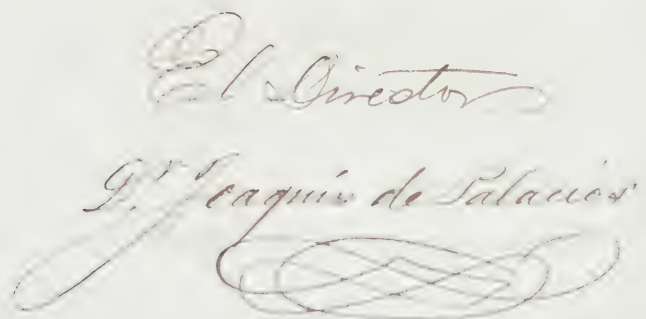 El Director
Dr. Joaquín de Palacios